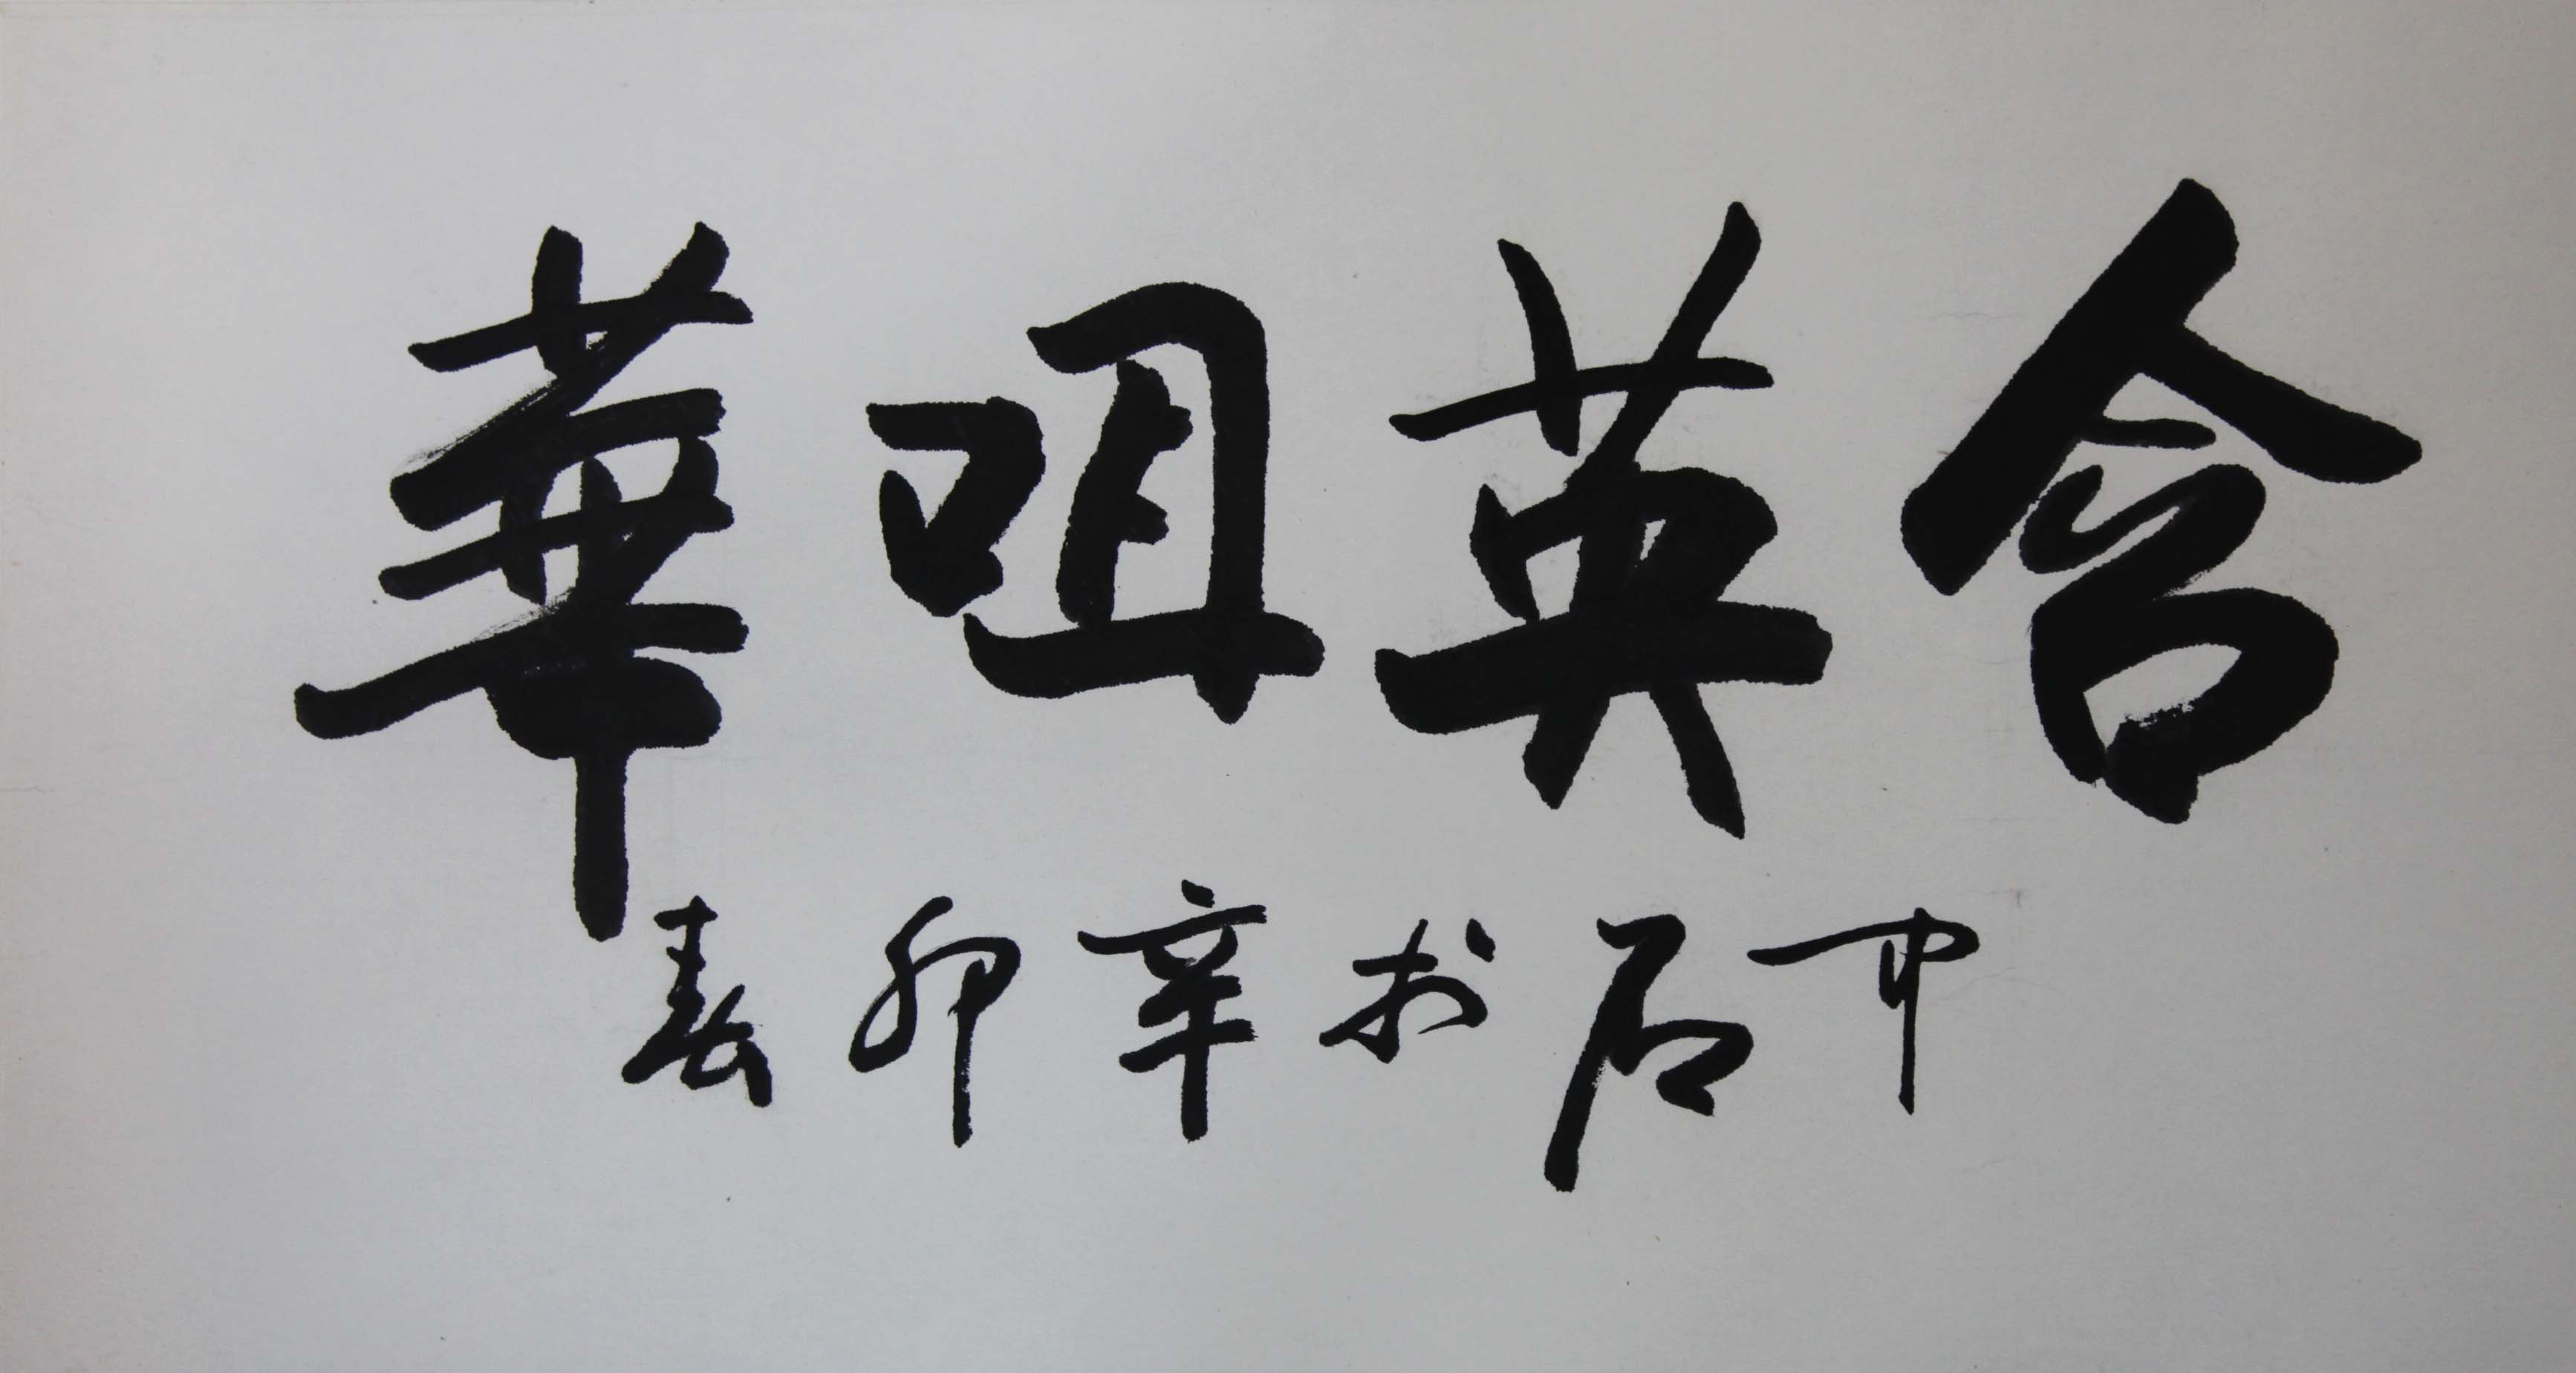 含英咀華
中石於辛卯春